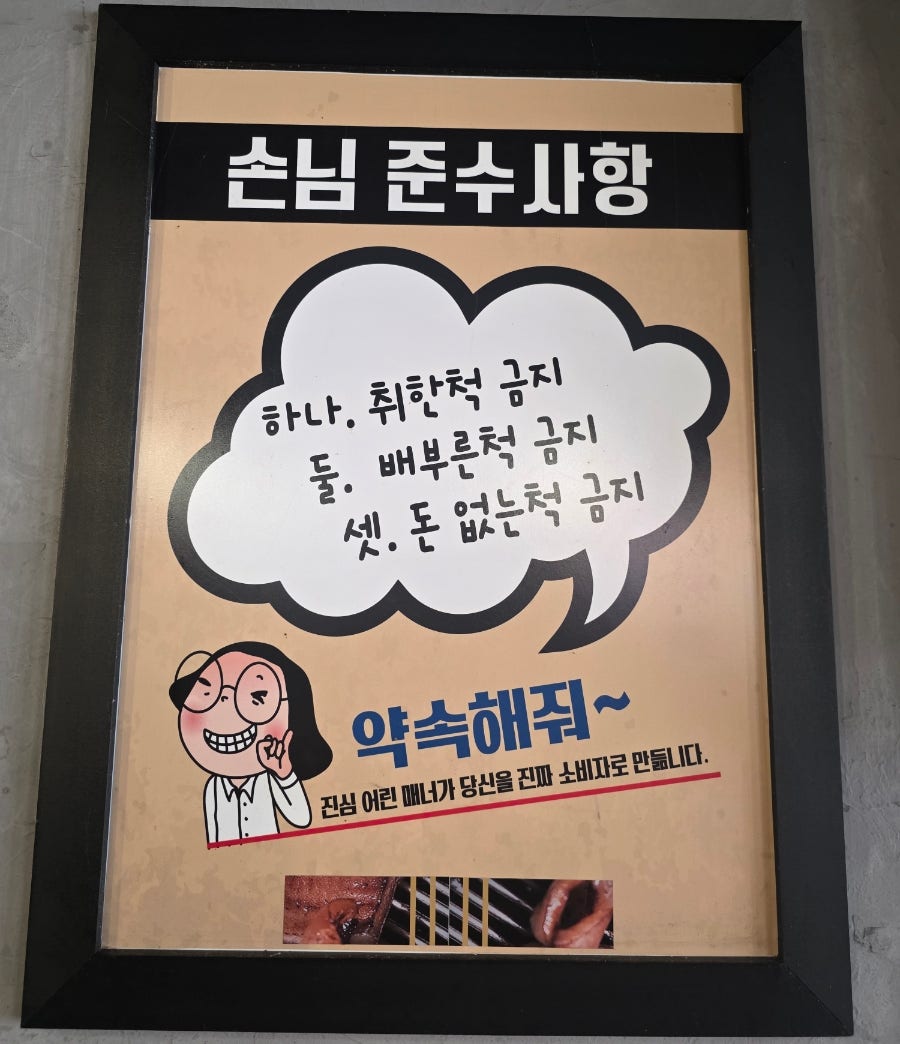 손님 준수사항
하나. 취한척 금지
둘. 배부른척 금지
셋. 돈 없는척 금지
약속해줘~
진심 어린 매너가 당신을 진짜 소비자로 만듦니다.